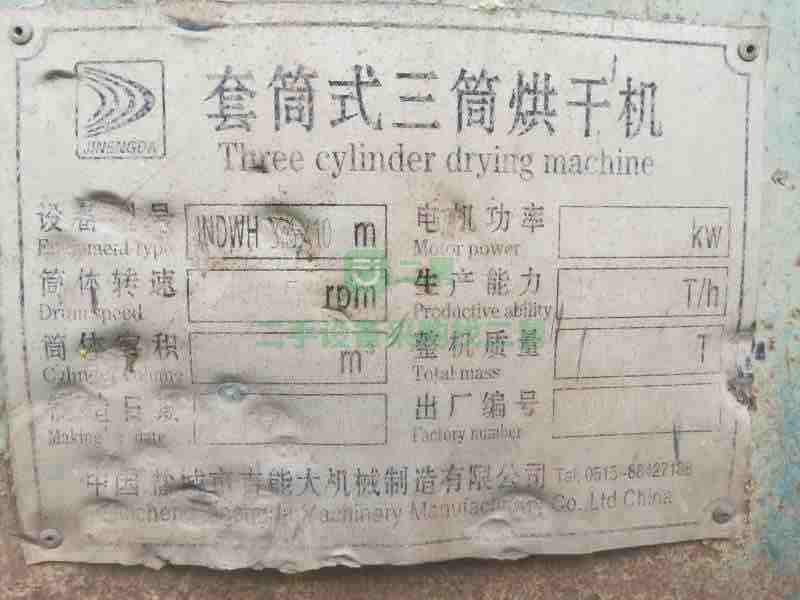 JINENGDA
套筒式三筒烘干机
Three cylinder drying machine
设备型号 JNDWH m 电机功率 kw
type Motor power
筒体转速 rpm 生产能力 T/h
Drum speed Productive ability
筒体容积 m³ 整机质量 T
Total mass
日 出厂编号
Making date Factory number
中国盐城市吉能大机械制造有限公司 Tel: 0515-88427188
Machinery Manufactory Co., Ltd China
二手设备